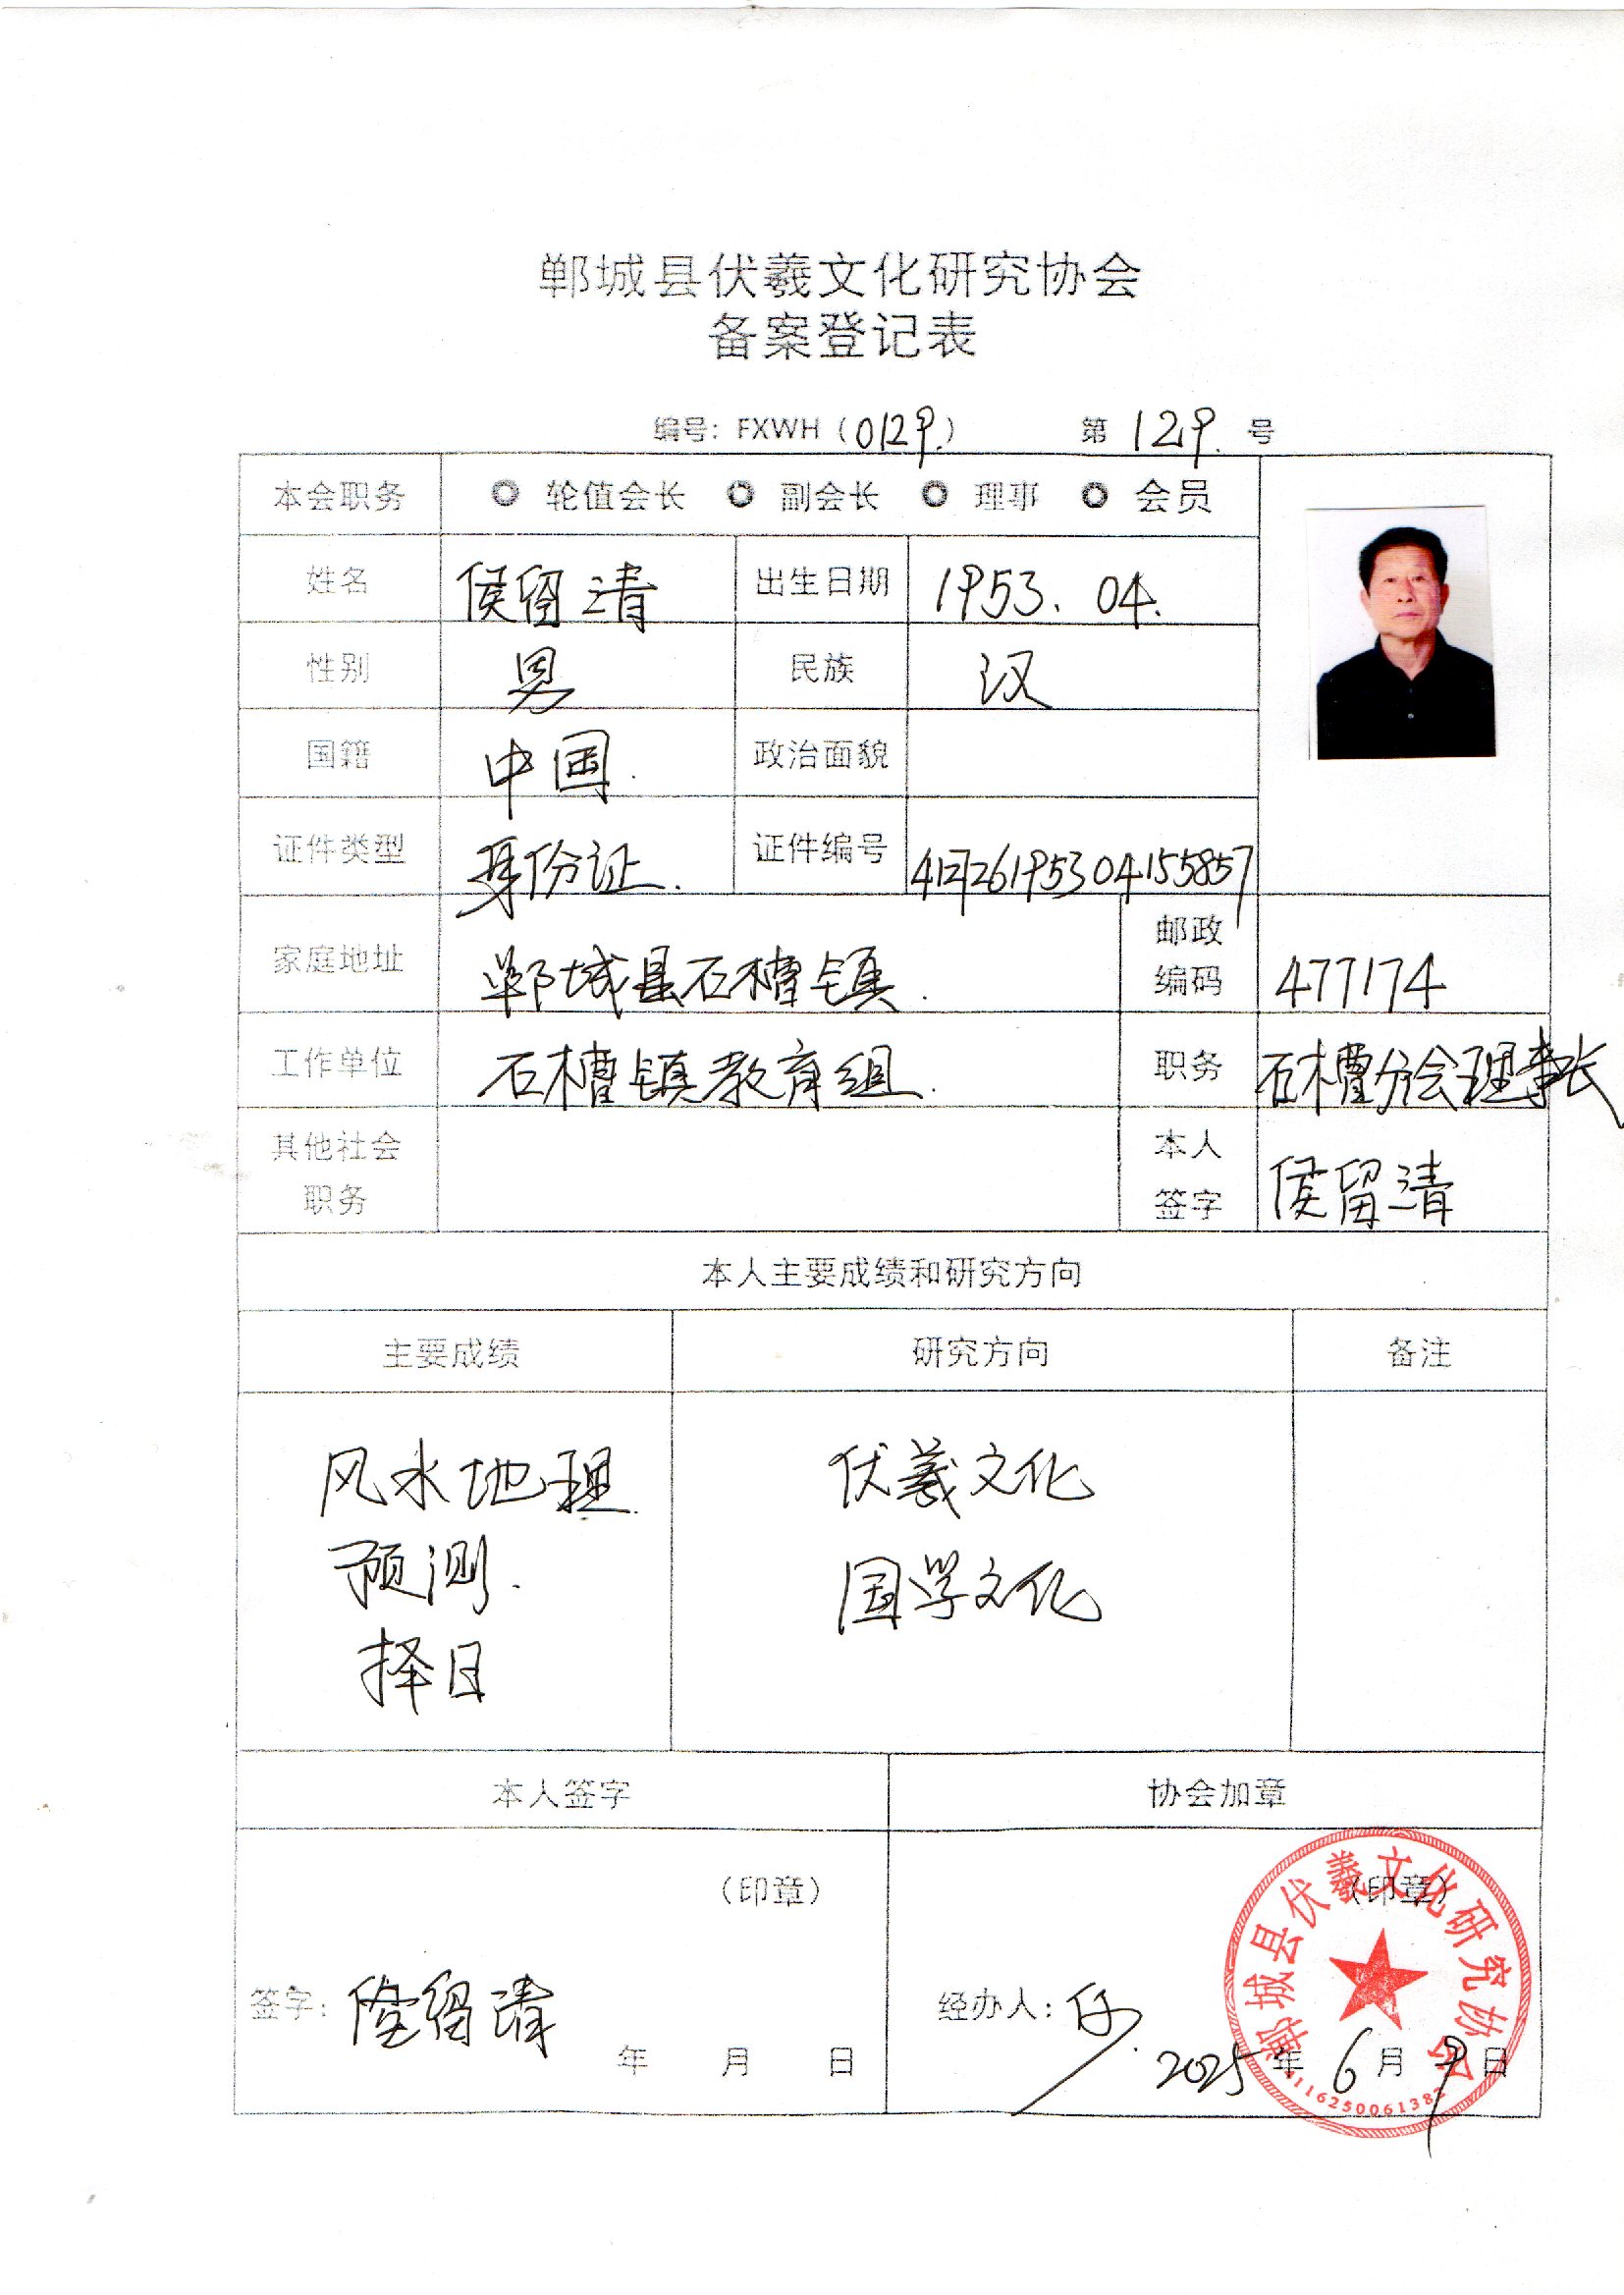 郸城县伏羲文化研究协会
备案登记表
编号：FXWH（0129.） 第 129. 号
本会职务 轮值会长 副会长 理事 会员
姓名 侯留清 出生日期 1953.04.
性别 男 民族 汉
国籍 中国. 政治面貌
证件类型 身份证. 证件编号 412726195304155857
家庭地址 郸城县石槽镇. 邮政编码 477174
工作单位 石槽镇教育组. 职务 石槽分会理事长
其他社会职务 本人签字 侯留清
本人主要成绩和研究方向
主要成绩 研究方向 备注
风水地理. 伏羲文化
预测. 国学文化
择日
本人签字 协会加章
（印章） （印章）
签字：侯留清 经办人：
年 月 日 2025年 6月 9日
郸城县伏羲文化研究协会
4116250061382